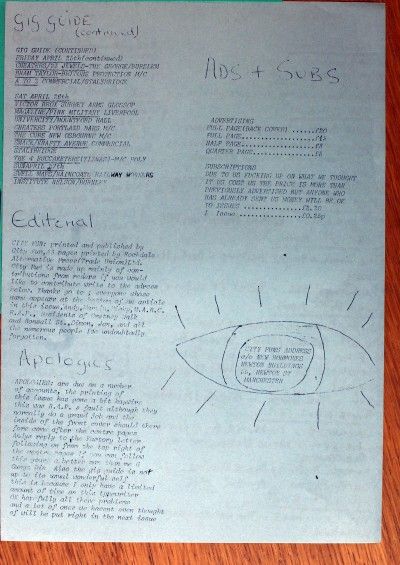 GIG GUIDE
(continued)
GIG GUIDE (CONTINUED)
FRIDAY APRIL 25th(continued)
CHEATERS/DJ JEWELS-THE GEORGE/BURSLEM
BRAM TAYLOR-BRITONS PROTECTION M/C
A TO Z COMMERCIAL/STALYBRIDGE
SAT APRIL 26th
VICTOR BROX SURREY ARMS GLOSSOP
MAGAZINE/PINK MILITARY LIVERPOOL
CHEATERS PORTLAND BARS M/C
THE CUBE NEW OSBOURNE M/C
COMMERCIAL
STALYBRIDGE
POLY
SUN APRIL 27th
RAILWAY WORKERS
INSTITUTE NELSON/BURNLEY
ADS + SUBS
ADVERTISING
FULL PAGE(BACK COVER)
FULL PAGE
HALF PAGE
QUARTER PAGE
SUBSCRIPTIONS
DUE TO US FUCKING UP ON WHAT WE THOUGHT
IT US COST US THE PRICE IS MORE THAN
PREVIOUSLY ADVERTISED BUT ANYONE WHO
HAS ALREADY SENT US MONEY WILL BE OK
10 ISSUES
1 Issue
Editorial
CITY FUN: printed and published by
City Fun, pages printed by Rochdale
Alternative Press(Trade Union)Ltd.
City Fun is made up mainly of con-
tributions from readers if you would
like to contribute write to the adress
below. Thanks go to everyone whose
name appears at the bottom of an article
in this issue, Andy, M.A.N.C.
R.A.P., residents of
and and all
the numerous people Ive undoubtedly
forgotten.
Apologies
APOLOGIES: are due on a number
of accounts, the printing of
this issue has gone a bit haywire
this was R.A.P.s fault although they
normally do a grand job and the
inside of the front cover should there
fore come after the centre pages
reply to the Factory letter
following on from the top right of
the centre pages if you can follow
this youre a better man than me a
Gunga Din Also the gig guide is not
up to its usual wonderful self
this is because I only have a limited
amount of time on this typewriter
OK hopefully all these problems
and a lot of ones we havent even thought
of will be put right in the next issue
CITY FUNS ADDRESS
c/o NEW HORMONES
NEWTON BUILDINGS
50, NEWTON ST
MANCHESTER